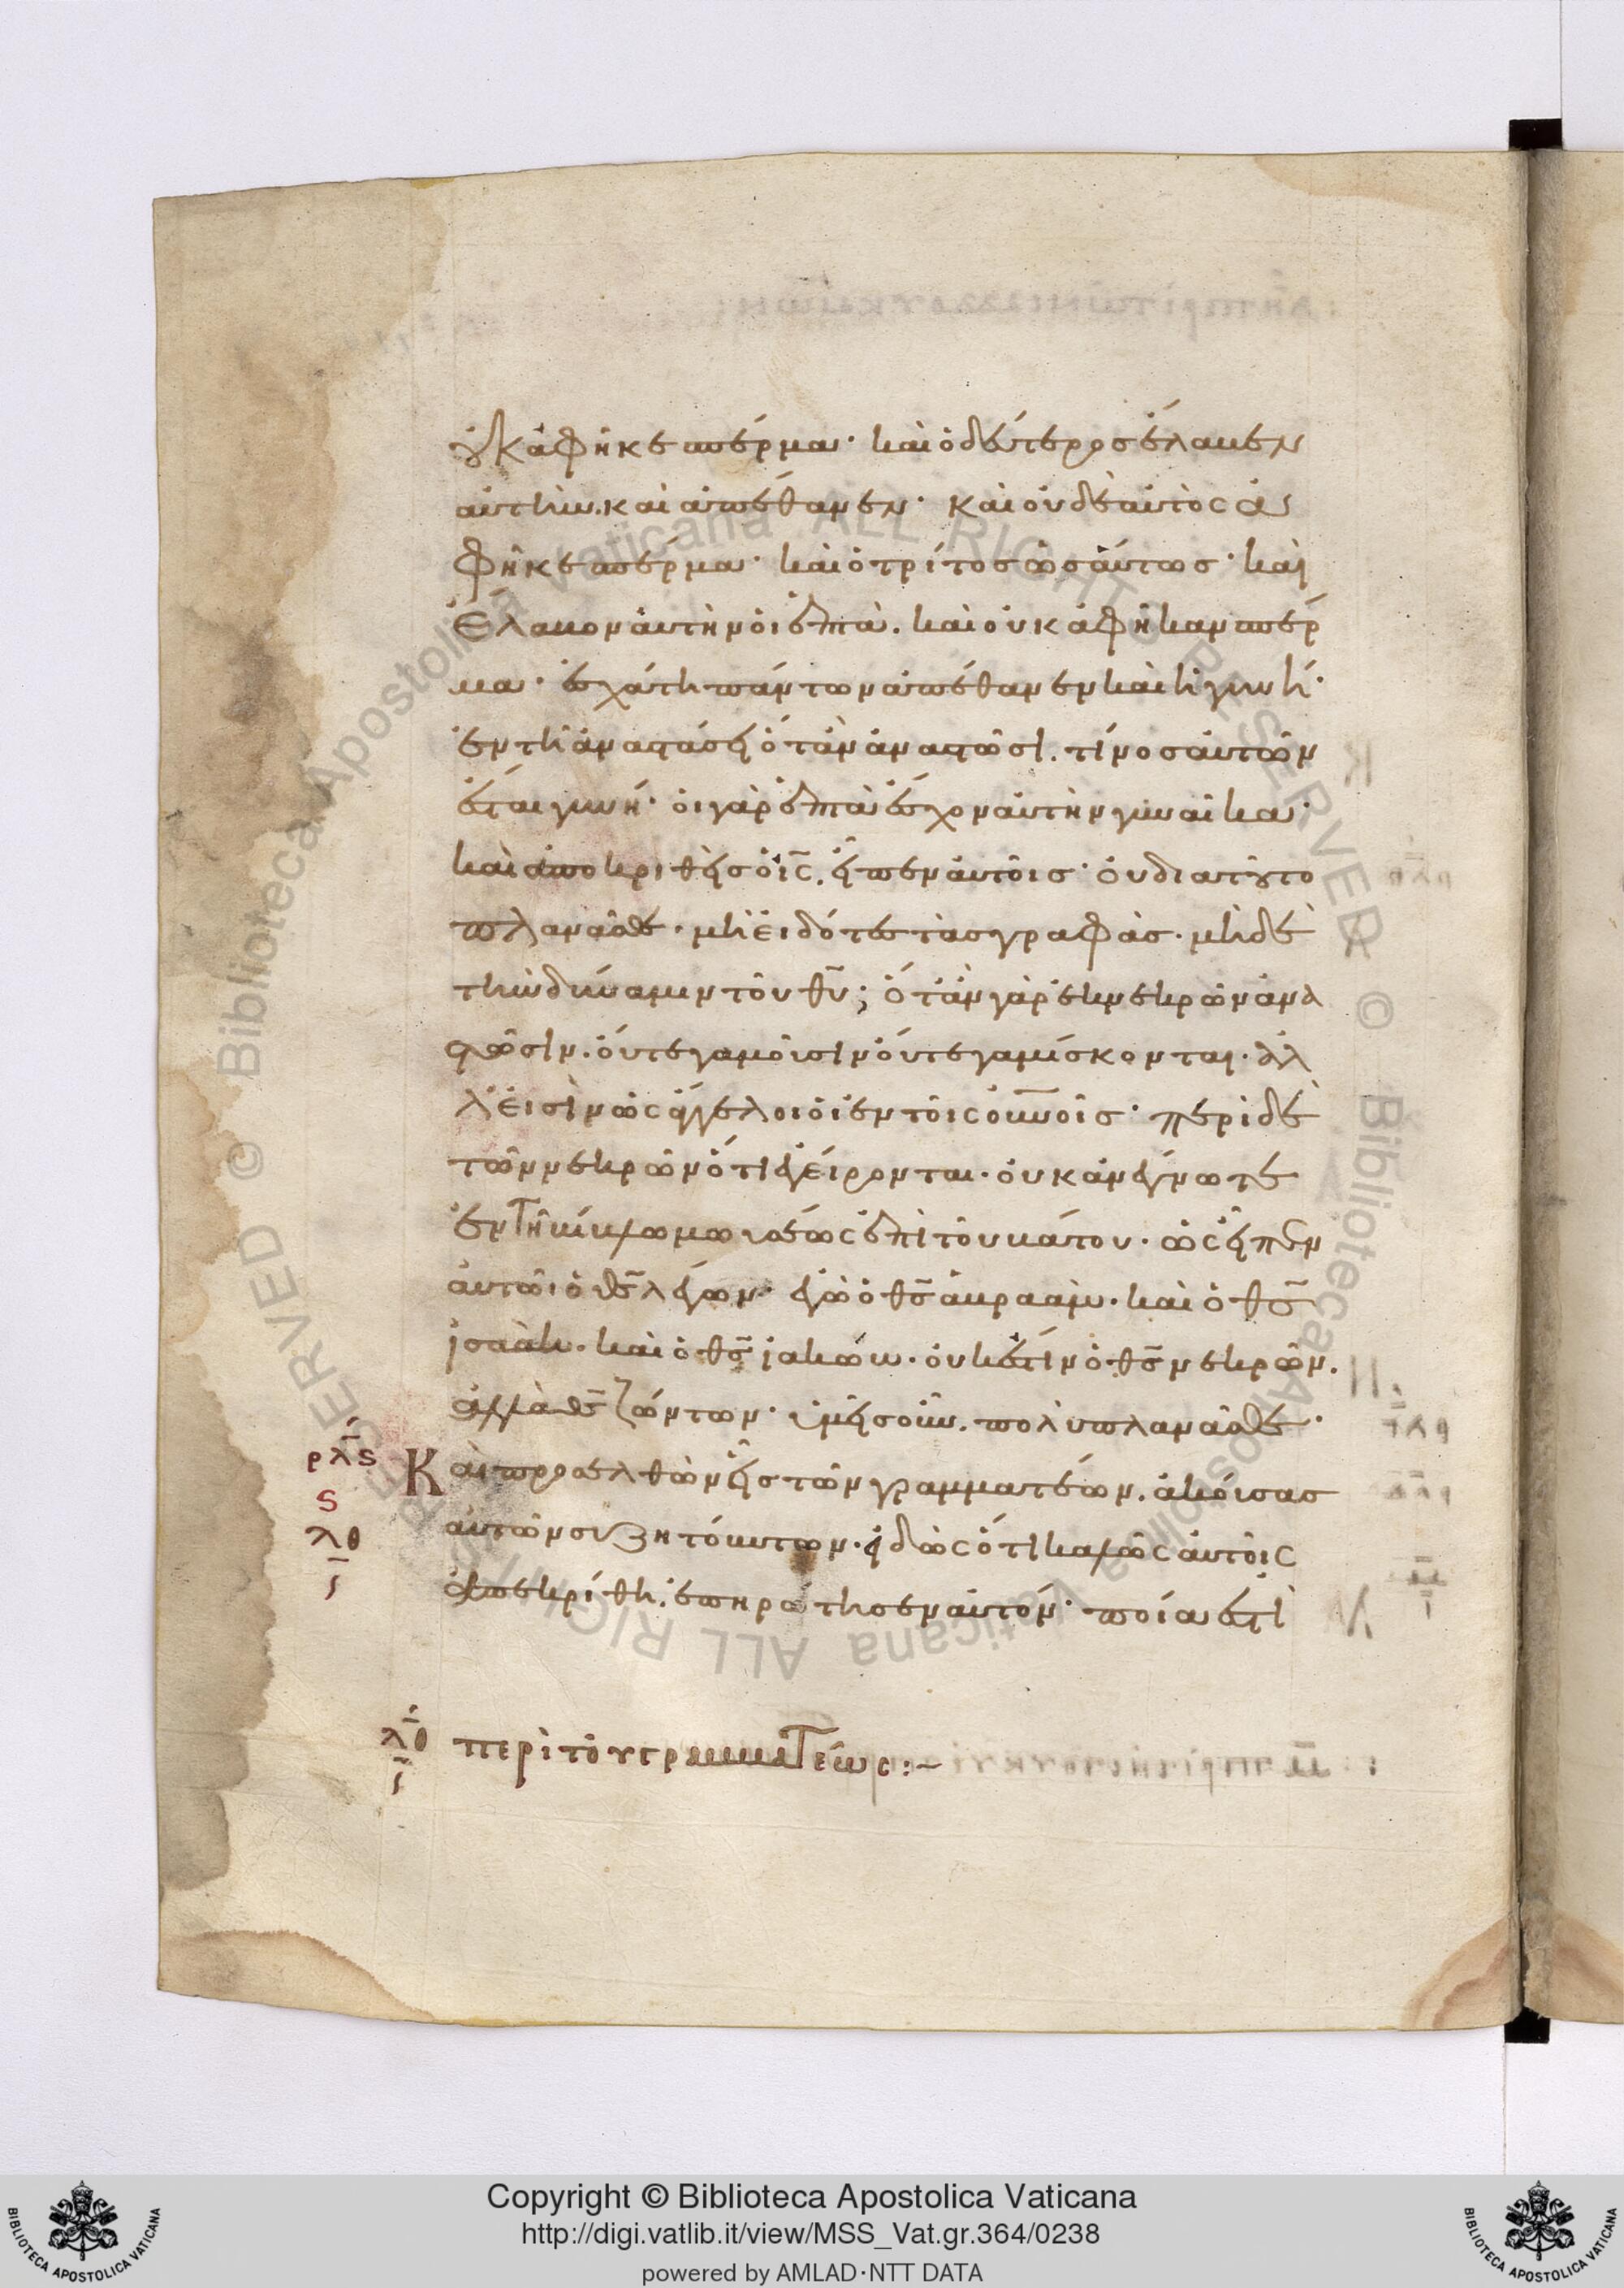 οὐκ ἀφῆκε σπέρμα· καὶ ὁ δεύτερος ἔλαβεν
αὐτὴν. καὶ ἀπέθανεν· καὶ οὐδὲ αὐτὸς ἀ
φῆκε σπέρμα· καὶ ὁ τρίτος ὡσάυτως· καὶ
ἔλαβον ἀυτὴν ὁι ἑπτὰ. καὶ οὐκ ἀφῆκαν σπέρ
μα· ἐσχάτη πάντων ἀπέθανεν καὶ ἡ γυνή·
ἐν τῆ ἀναστάσει ὅταν ἀναστῶσι. τίνος ἀυτῶν
ἔσται γυνή· ὁι γὰρ ἑπτὰ ἔσχον ἀυτὴν γυναῖκα·
καὶ ἀποκριθεὶς ὁ ις̅. εἶπεν ἀυτοῖς· οὐ διατοῦτο
πλανᾶσθε. μὴ ἐιδότες τὰς γραφάς. μηδὲ
τὴν δύναμιν τοῦ θυ̅; ὅταν γὰρ ἐκ νεκρῶν ἀνα
στῶσιν. ὄυτε γαμοῦσιν ὄυτε γαμίσκονται. ἀλ
λ' ἐισὶν ὡς ἄγγελοι ὁι ἐν τοῖς ὀυνοῖς· περὶ δὲ
τῶν νεκρῶν ὅτι ἐγείρονται. ὀυκ ἀνέγνωτε
ἐν τῆ βίβλω μωυσέως ἐπὶ τοῦ βάτου. ὡς εἶπεν
ἀυτῶι ὁ θς̅ λέγων· ἐγὼ ὁ θς̅ ἀβραάμ. καὶ ὁ θς̅
ἰσαὰκ. καὶ ὁ θς̅ ἰακώβ. οὐκ ἔστιν ὁ θς̅ νεκρῶν.
ἀλλὰ θς̅ ζώντων· ὑμεῖς οὖν. πολὺ πλανᾶσθε·
ρλς Καὶ προσελθὼν εἷς τῶν γραμματέων. ἀκόυσας
ς
λθ ἀυτῶν συζητόυντων. εἰδὼς ὅτι καλῶς ἀυτοῖς
ι ἀπεκρίθη. ἐπηρώτησεν ἀυτόν· ποία ἐστὶ
λθ περὶ τοῦ γραμματέως:~
ι
Copyright © Biblioteca Apostolica Vaticana
http://digi.vatlib.it/view/MSS_Vat.gr.364/0238
powered by AMLAD·NTT DATA